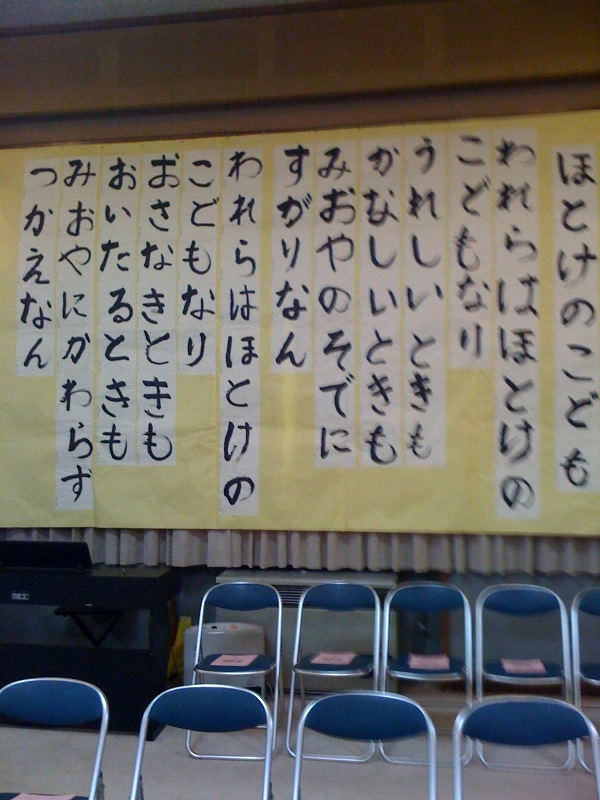 ほとけのこども
われらはほとけの
こどもなり
うれしいときも
かなしいときも
みおやのそでに
すがりなん
われらはほとけの
こどもなり
おさなきときも
おいたるときも
みおやにかわらず
つかえなん